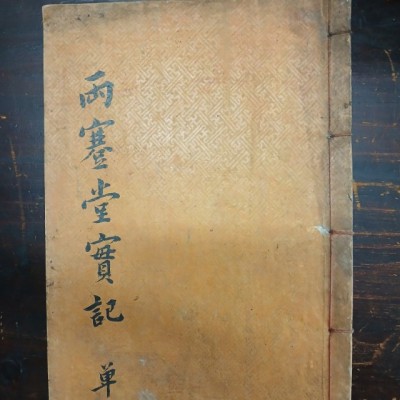 兩蹇堂實記
單